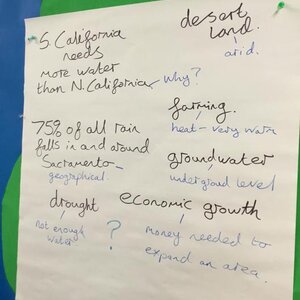 S. California
needs
more water
than N. California.
why?
75% of all rain
falls in and around
Sacramento -
geographical.
drought
not enough
water
?
desert
land.
arid.
farming.
heat - very warm
groundwater
underground level
economic growth
money needed to
expand an area.